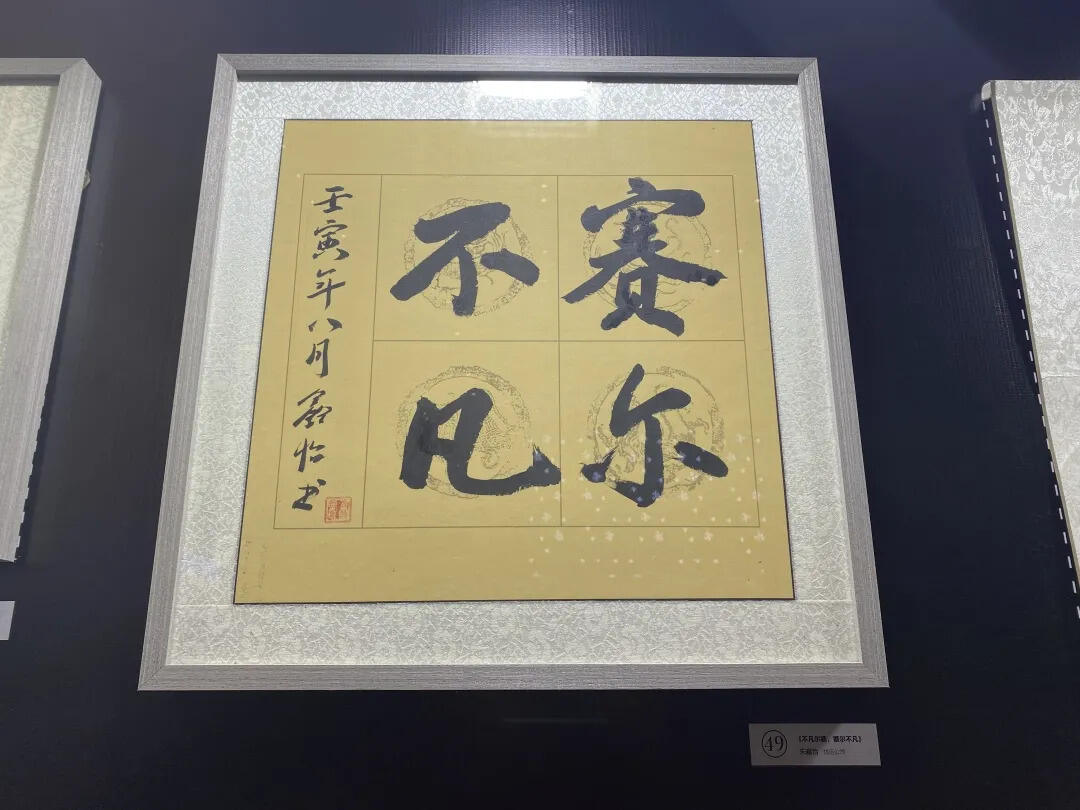 赛尔
不凡
壬寅年八月 怡书
49
《不凡尔赛，赛尔不凡》